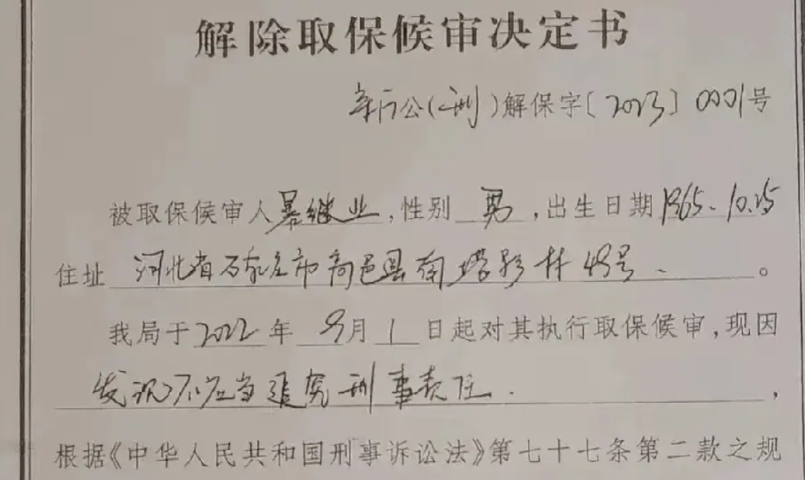 解除取保候审决定书
新公(刑)解保字〔2023〕0001号
被取保候审人暴继业,性别 男,出生日期1965.10.25
住址 河北省石家庄市高邑县南塔影村48号。
我局于2022年9月1日起对其执行取保候审,现因
发现不应当追究刑事责任,
根据《中华人民共和国刑事诉讼法》第七十七条第二款之规